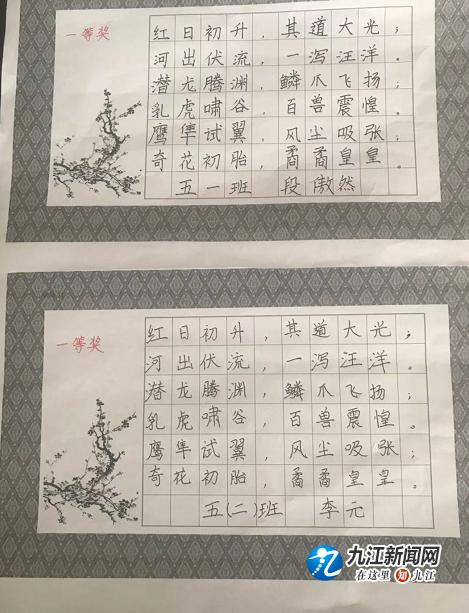 一等奖
红日初升，其道大光；
河出伏流，一泻汪洋。
潜龙腾渊，鳞爪飞扬；
乳虎啸谷，百兽震惶。
鹰隼试翼，风尘吸张；
奇花初胎，矞矞皇皇。
五一班 段傲然
一等奖
红日初升，其道大光；
河出伏流，一泻汪洋。
潜龙腾渊，鳞爪飞扬；
乳虎啸谷，百兽震惶。
鹰隼试翼，风尘吸张；
奇花初胎，矞矞皇皇。
五(二)班 李元
九江新闻网
在这里 知九江